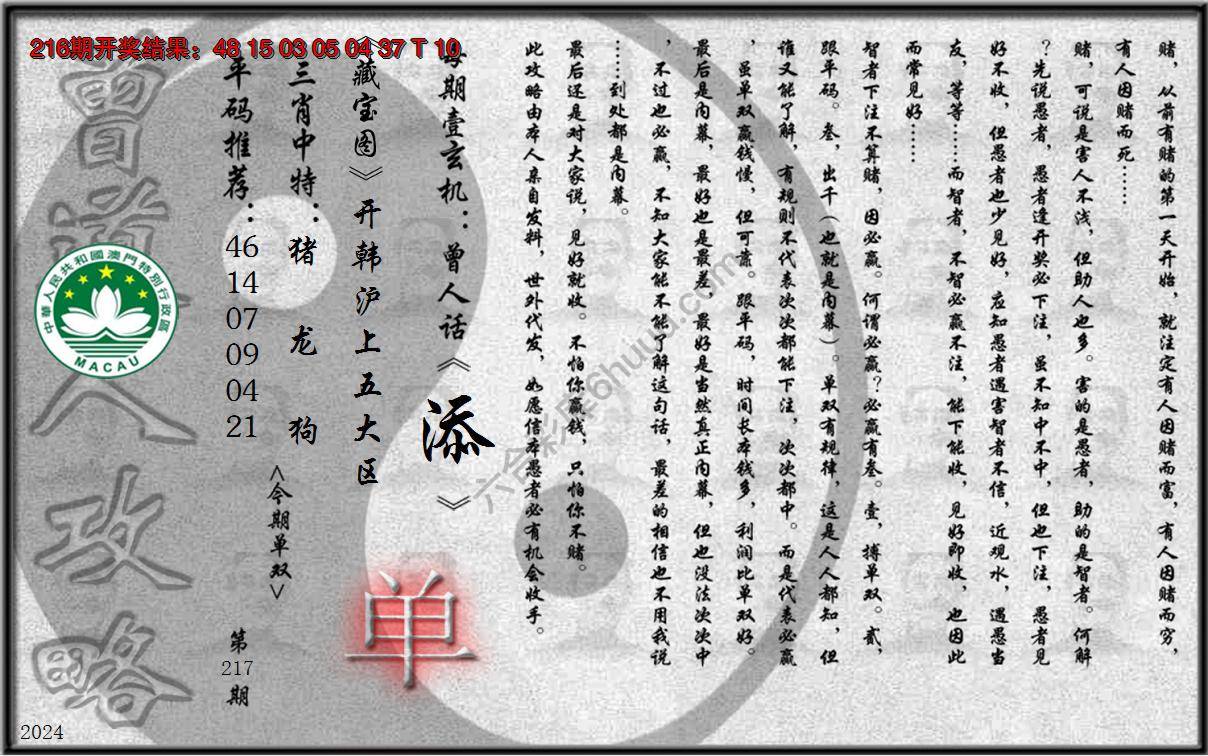 216期开奖结果：48 15 03 05 04 37 T 10
赌，从前有赌的第一天开始，就注定有人因赌而富，有人因赌而穷，
有人因赌而死……
赌，可说是害人不浅，但助人也多。害的是愚者，助的是智者。何解
？先说愚者，愚者逢开奖必下注，虽不知中不中，但也下注，愚者见
好不收，但愚者也少见好，应知愚者遇害智者不信，近观水，遇愚当
友，等等……而智者，不智必赢不注，能下能收，见好即收，也因此
而常见好……
智者下注不算赌，因必赢。何谓必赢？必赢有叁。壹，搏单双。贰，
跟平码。叁，出千（也就是内幕）。单双有规律，这是人人都知，但
谁又能了解，有规则不代表次次都能下注，次次都中。而是代表必赢
，虽单双赢钱慢，但可靠。跟平码，时间长本钱多，利润比单双好。
最后是内幕，最好也是最差，最好是当然真正内幕，但也没法次次中
，不过也必赢，不知大家能不能了解这句话，最差的相信也不用我说
……到处都是内幕。
最后还是对大家说，见好就收。不怕你赢钱，只怕你不赌。
此攻略由本人亲自发料，世外代发，如愿信本愚者必有机会收手。
每期壹玄机：曾人话《添》
《藏宝图》开韩沪上五大区
三肖中特：猪 龙 狗
平码推荐：46 14 07 09 04 21
<今期单双>
单
第217期
曾道人攻略
中華人民共和國澳門特別行政區
MACAU
六合彩库6huuu.com
2024